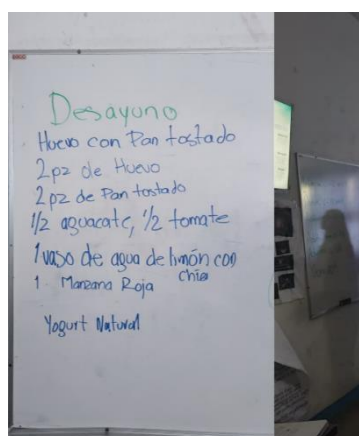 Desayuno
Huevo con Pan tostado
2pz de Huevo
2pz de Pan tostado
1/2 aguacate, 1/2 tomate
1 vaso de agua de limón con
Chia
1 Manzana Roja
Yogurt Natural